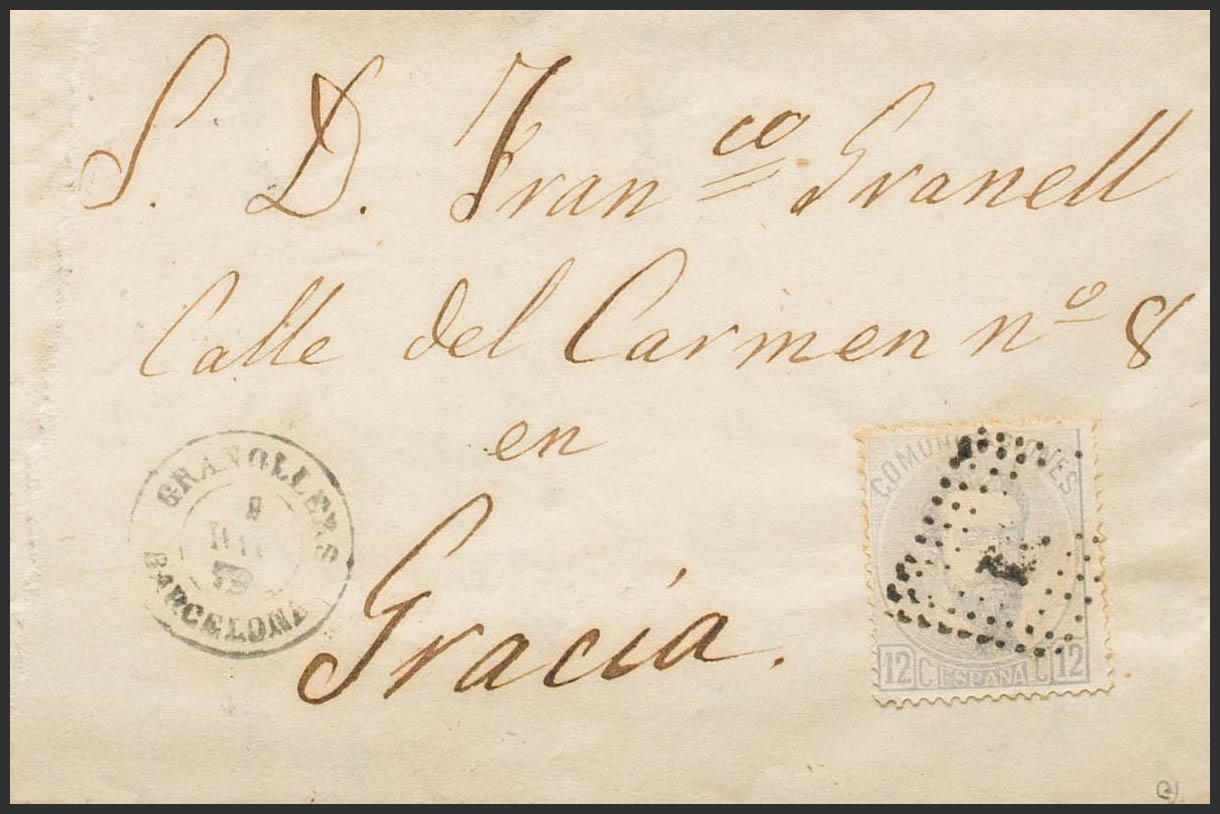 S. D. Franco Granell
Calle del Carmen no 8
en
Gracia.
GRANOLLERS
BARCELONA
COMUNICACIONES
12 C. ESPAÑA C. 12